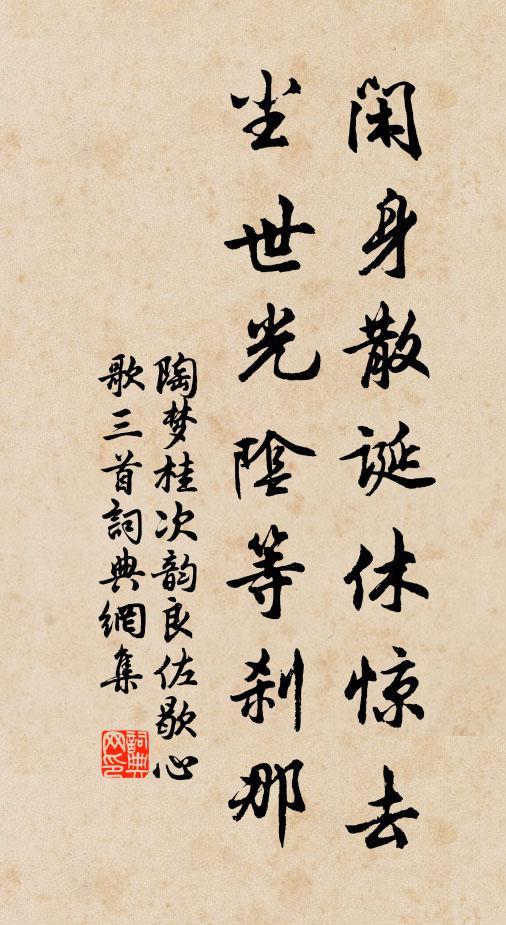 闲身散诞休惊去
尘世光陰等刹那
陶梦桂次韵良佐歇心
歌三首詞典網集
詞典網印